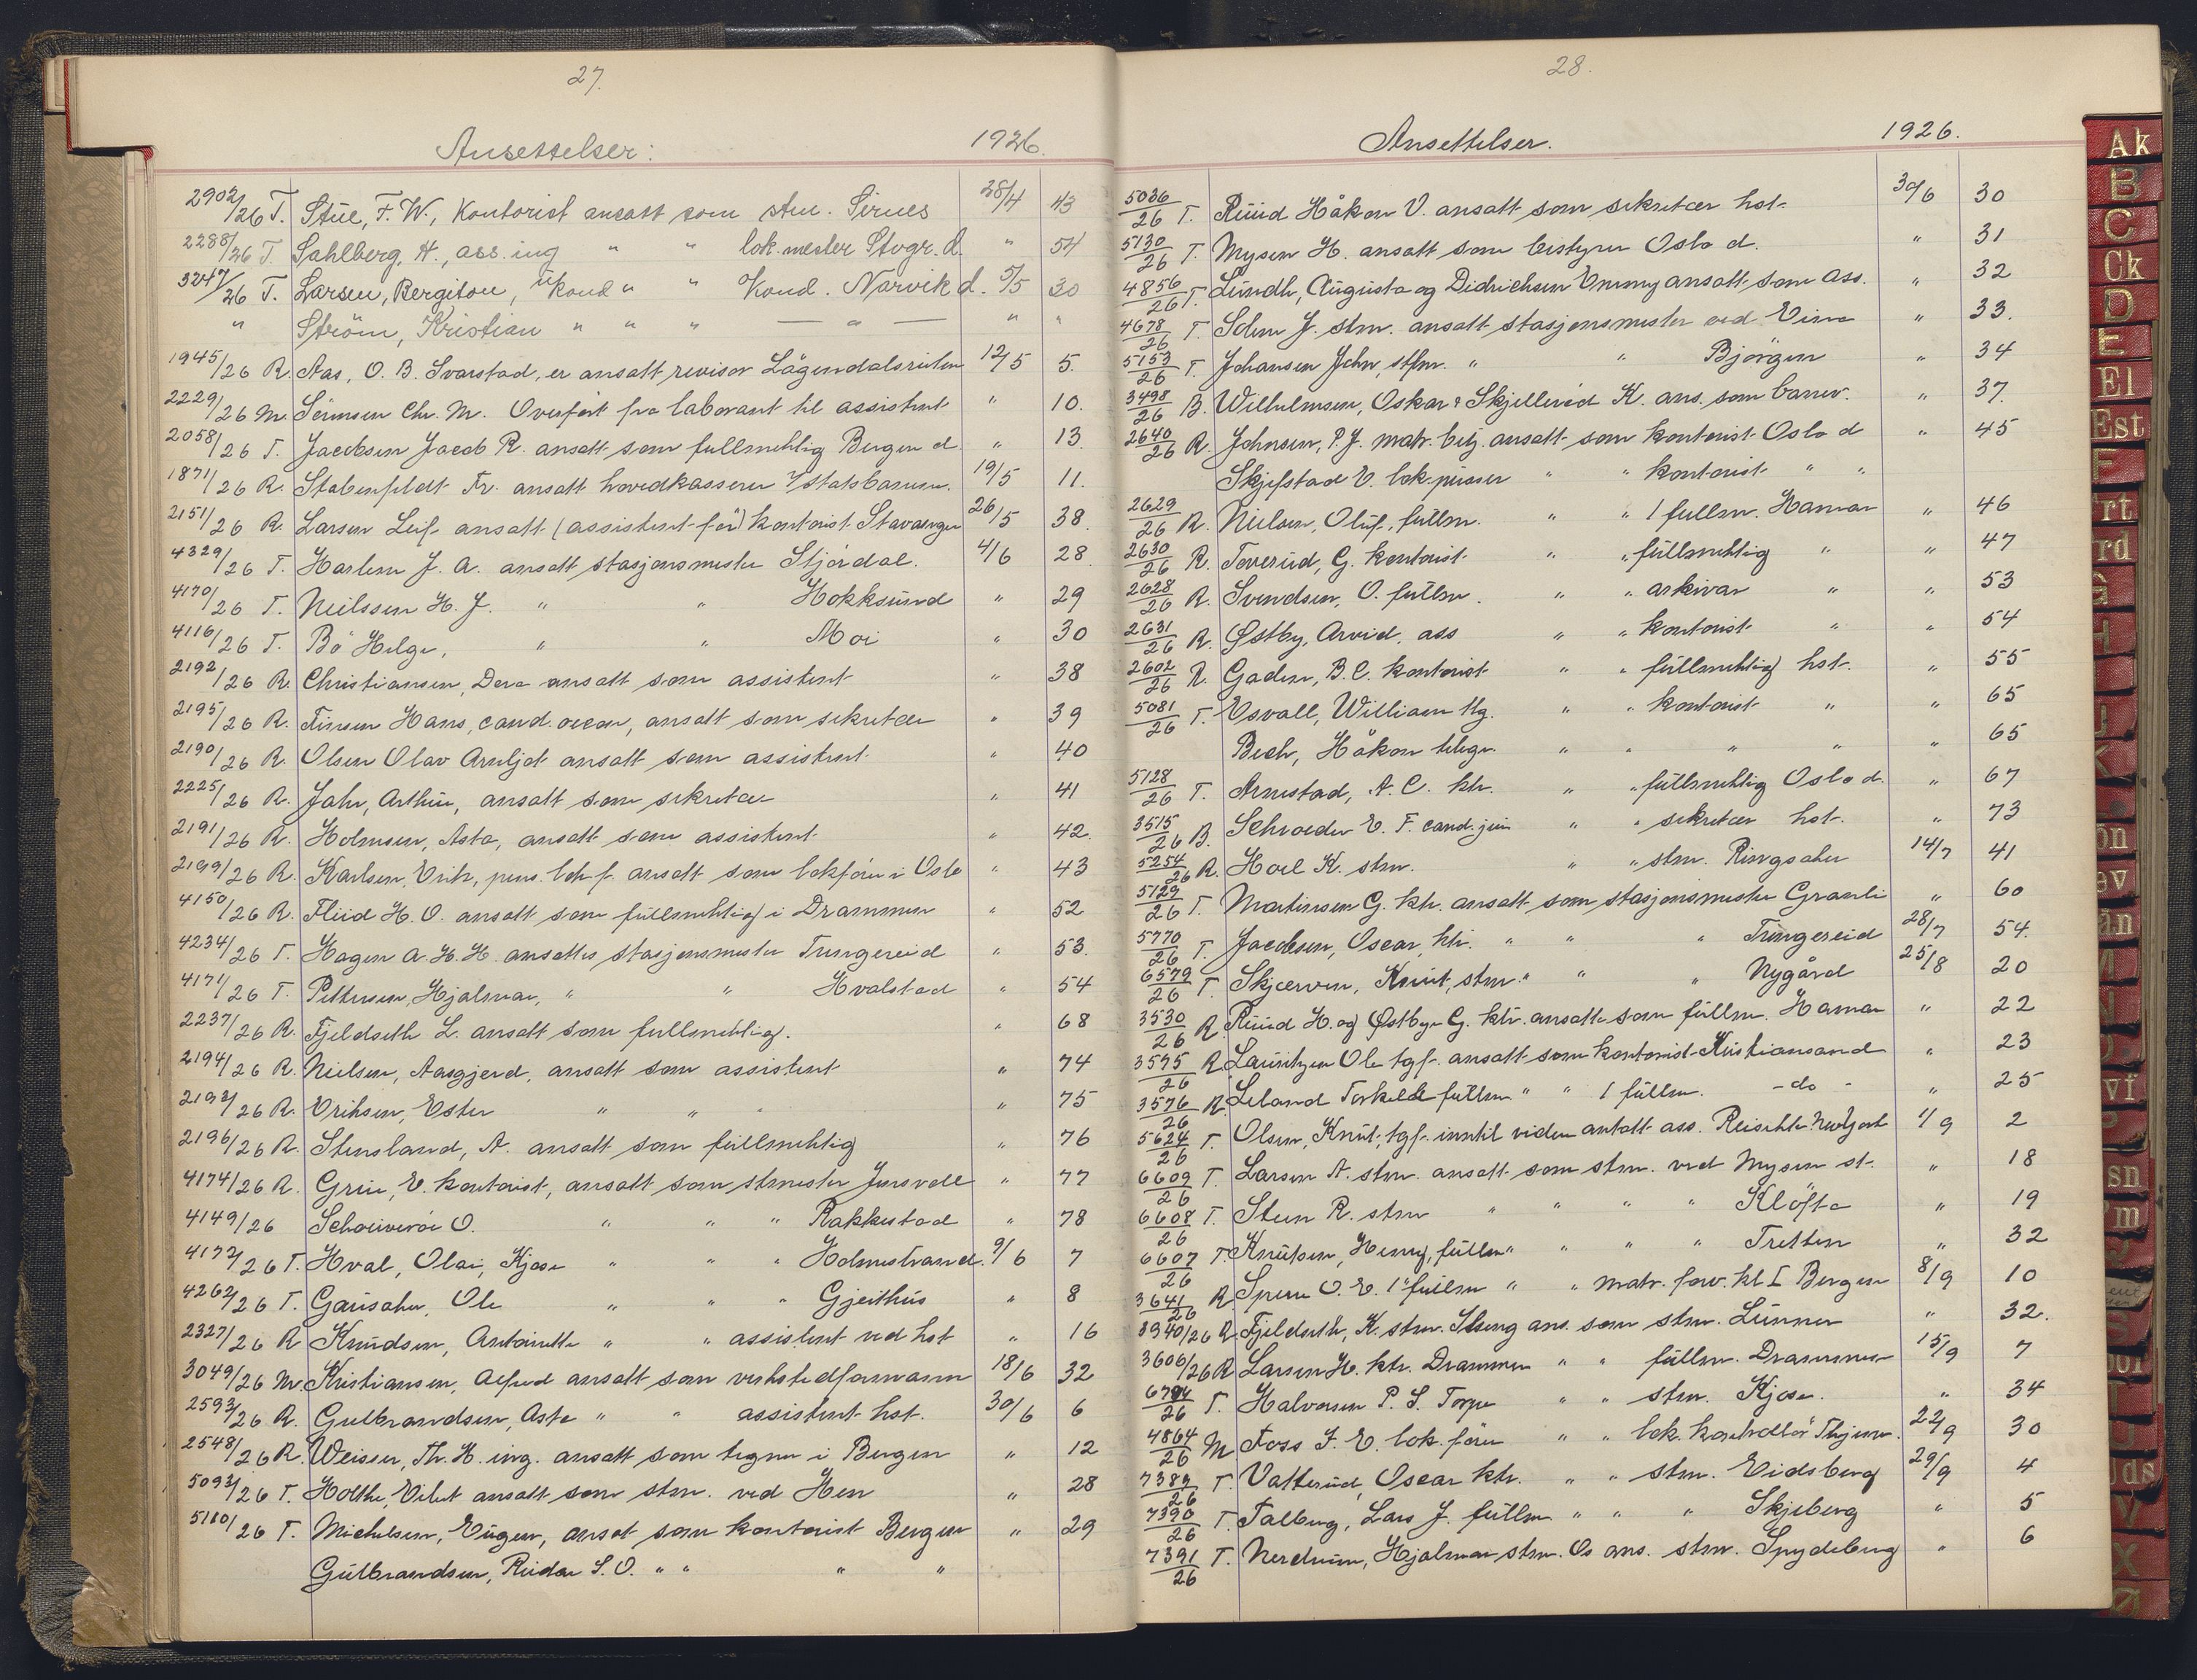 27.
Ansettelser: 1926.
2902/26 T. Stue, F. W., Kontorist ansatt som stm. Sirnes 28/4 43
2288/26 T. Sahlberg, H., ass. ing " " lok. mester Stvgr. d. " 54
3247/26 T. Larsen, Bergiton, ukond " " Kond. Narvik d. 5/5 30
" Ström, Kristian " " " — " — " "
1945/26 R. Aas, O. B. Svarstad, er ansatt revisor Lågendalsruten 12/5 5.
2229/26 M. Sörmsen Chr. M. Overfört fra laborant til assistent " 10.
2058/26 T. Jacobsen Jacob R. ansatt som fullmektig Bergen d. " 13
1871/26 R. Stabenfeldt Fr. ansatt hovedkasserer v/statsbanene. 19/5 11.
2151/26 R. Larsen Leif ansatt (assistent för) kontorist Stavanger 26/5 38
4329/26 T. Harlem J. A. ansatt stasjonsmester Stjördal. 4/6 28
4170/26 T. Neilssen H. J. " " Hokksund " 29
4116/26 T. Bö Helge, " " Moi " 30
2192/26 R. Christiansen, Dora ansatt som assistent " 38
2195/26 R. Finsen Hans, cand. oecon, ansatt som sekretær " 39
2190/26 R. Olsen Olav Arnljot ansatt som assistent " 40
2225/26 R. Jahr, Arthur, ansatt som sekretær " 41
2191/26 R. Holmsen, Asta, ansatt som assistent " 42.
2199/26 R. Karlsen, Erik, pens. lokf. ansatt som lokförer i Oslo " 43
4150/26 R. Fliid H. O. ansatt som fullmektig i Drammen " 52
4234/26 T. Hagen A. H. H. ansattes stasjonsmester Tungereid " 53.
4171/26 T. Pettersen, Hjalmar, " " Hvalstad " 54
2237/26 R. Fjeldseth L. ansatt som fullmektig. " 68
2194/26 R. Nielsen, Aasgjerd, ansatt som assistent " 74
2193/26 R. Eriksen, Ester " " " " 75
2196/26 R. Stensland, A. ansatt som fullmektig " 76
4174/26 R. Grue, E. kontorist, ansatt som stmester Jensvoll " 77
4149/26 O. " " " Rakkestad " 78
4172/26 T. Hval, Olai, Kjose " " " Holmestrand. 9/6 7
4262/26 T. Gausaker, Ole " " " Gjeithus " 8
2327/26 R Knudsen, Antoinette " " assistent ved hst " 16
3049/26 M. Kristiansen, Alfred ansatt som verkstedformann 18/6 32
2593/26 R. Gulbrandsen, Aste " " assistent hst. 30/6 6
2548/26 R. Weisser, Th. H. ing. ansatt som tegner i Bergen " 12
5093/26 T. Holthe, Eilert ansatt som stm. ved Hen " 28
5180/26 T. Michelsen, Eugen, ansat som kontorist Bergen " 29
Gulbrandsen, Reidar S. O. " " " "
28.
Ansettelser. 1926.
5036/26 T. Ruud Håkon V. ansatt som sekretær hst. 30/6 30
5130/26 T. Mysen H. ansatt som bestyrer Oslo d. " 31
4856/26 T. Lundh, Augusta og Didrichsen Emmy ansatt som ass. " 32
4678/26 T Solem J. stm. ansatt stasjonsmester ved Eina " 33.
5153/26 T. Johansen John, stfm. " " Björgen " 34
3498/26 B. Wilhelmsen, Oskar & Skjellerud K. ans. som banev. " 37.
2640/26 R. Johnsen, P. J. matr. betj. ansatt som kontorist Oslo d " 45
Skjefstad E. lok.pusser " " kontorist " "
2629/26 R. Nielsen, Oluf, fullm. " " 1 fullm. Hamar " 46
2630/26 R. Toverud, G. kontorist " " fullmektig " " 47
2628/26 R. Svendsen, O. fullm. " " arkivar " " 53
2631/26 R. Østby, Arvid, ass " " kontorist " " 54
2602/26 R. Gaden, B. C. kontorist " " fullmektig hst. " 55
5081/26 T. Esvall, William tlg. " " kontorist " " 65
Bech, Håkon telegr. " " " " " 65
5128/26 T. Arnestad, A. C. ktr. " " fullmektig Oslo d. " 67
3515/26 B. Schroeder E. F. cand. jur " " sekretær hst. " 73
5254/26 R. Hoel K. stm. " " stm. Ringsaker 14/7 41
5129/26 T. Martinsen G. ktr. ansatt som stasjonsmester Granli " 60
5770/26 T. Jacobsen, Oscar, ktr. " " " Tungereid 28/7 54.
6579/26 T Skjærven, Knut, stm. " " " Nygård 25/8 20
3530/26 R Ruud H. og Østbye G. ktr. ansatte som fullm. Hamar " 22
3575/26 R. Lauritzen Ole tgf. ansatt som kontorist Kristiansand " 23
3576/26 R. Leland Torkild fullm " " 1 fullm. - do - " 25
5624/26 T. Olsen, Knut, tgf. inntil videre antatt ass. 1/9 2
6609/26 T. Larsen A. stm. ansatt som stm. ved Mysen st. " 18
6608/26 T. Steen R. stm " " " " Klöfta " 19
6607/26 T. Knutsen, Henry, fullm " " " " Tretten " 32
3641/26 R Spere O. E. 1' fullm " " matr. forv. kl I Bergen 8/9 10
3940/26 R. Fjeldseth, K. stm. Stseng ans. som stm. Lunner " 32.
3606/26 R Larsen H. ktr. Drammen " " fullm. Drammen 15/9 7
6794/26 T. Halvorsen P. S. Torpe " " stm. Kjose. " 34
4864/26 M Foss J. E. lok. förer " " lok. kontrollör Thjem. 22/9 30
7389/26 T. Vatterud, Oscar ktr. " " stm. Eidsberg 29/9 4
7390/26 T. Falberg, Lars J. fullm " " " Skjeberg " 5
7391/26 T. Nerdrum, Hjalmar stm. Os ans. stm. Spydeberg " 6
Ak
B
C
Ck
D
E
El
Est
F
rt
rd
G
H
I
J
K
ön
ev
än
M
vf
sn
m
T
Uds
V
X
Ø